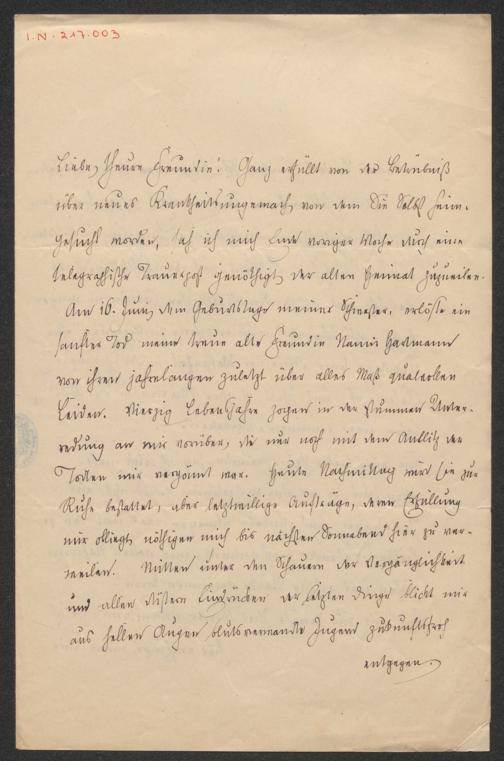 I.N. 217.003
Liebe, theure Freundin! Ganz erfüllt von der Betrübniß
über neues Krankheitsungemach, von dem Sie Selbst heim-
gesucht worden, sah ich mich Ende voriger Woche durch eine
telegraphische Trauerpost genöthigt, der alten Heimat zuzueilen.
Am 16. Juni, dem Geburtstage meiner Schwester, erlöste ein
sanfter Tod meine treue alte Freundin Hartmann
von ihren jahrelangen zuletzt über alles Maß qualvollen
Leiden. Vierzig Lebensjahre zogen in der stummen Unter-
redung an mir vorüber, die nur noch mit dem Antlitz der
Todten mir vergönnt war. Heute Nachmittag wird sie zur
Ruhe bestattet, aber letztwillige Aufträge, deren Erfüllung
mir obliegt, nöthigen mich bis nächsten Sonnabend hier zu ver-
weilen. Mitten unter den Schauern der Vergänglichkeit
und allen düstern Eindrücken der letzten Dinge blickt mir
aus hellen Augen blutsverwandte Jugend zukunftsfroh
entgegen.